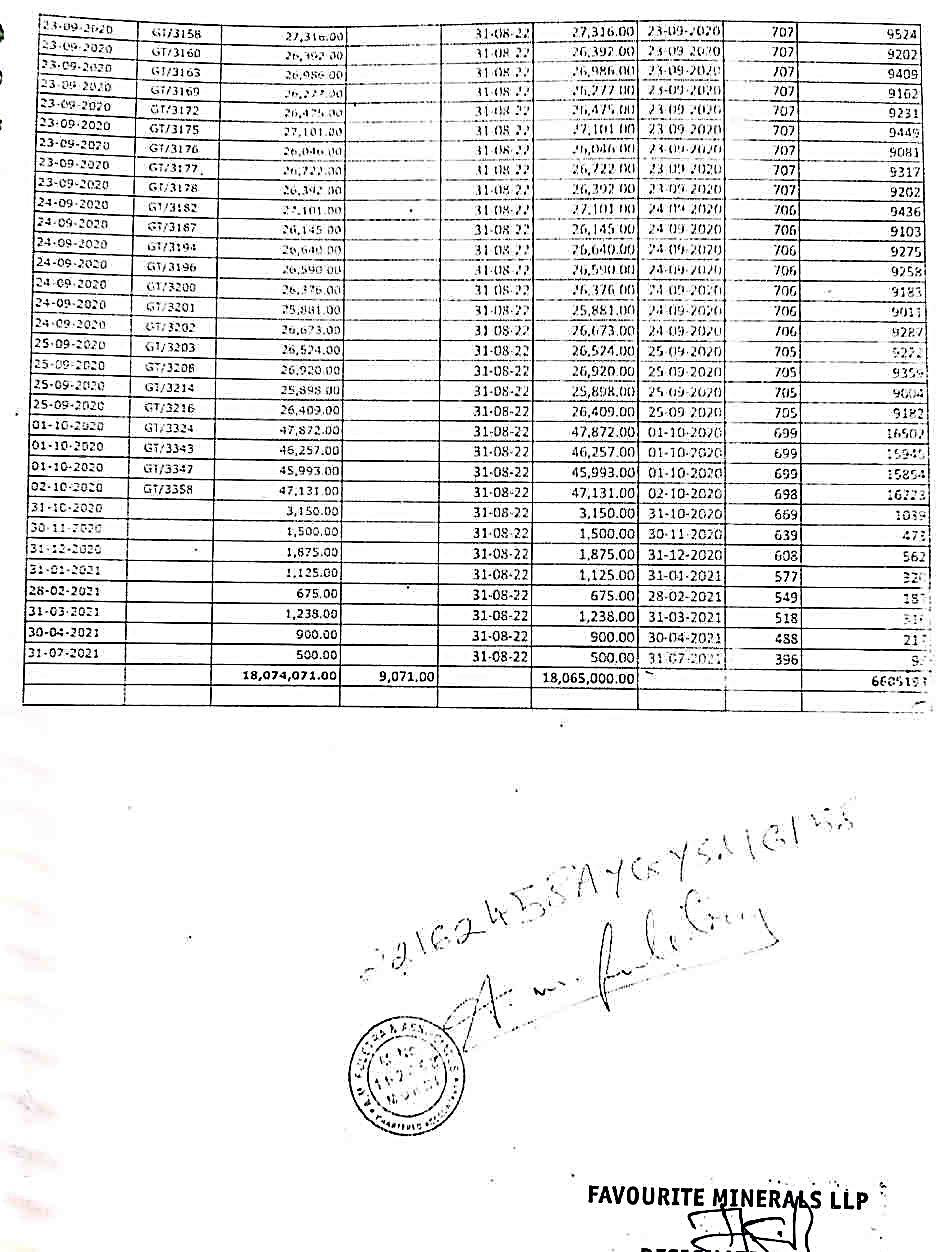 23-09-2020 GT/3158 27,316.00 31-08-22 27,316.00 23-09-2020 707 9524
23-09-2020 GT/3160 26,392.00 31-08-22 26,392.00 23-09-2020 707 9202
23-09-2020 GT/3163 26,986.00 31-08-22 26,986.00 23-09-2020 707 9409
23-09-2020 GT/3169 26,277.00 31-08-22 26,277.00 23-09-2020 707 9162
23-09-2020 GT/3172 26,475.00 31-08-22 26,475.00 23-09-2020 707 9231
23-09-2020 GT/3175 27,101.00 31-08-22 27,101.00 23-09-2020 707 9449
23-09-2020 GT/3176 26,046.00 31-08-22 26,046.00 23-09-2020 707 9081
23-09-2020 GT/3177 26,722.00 31-08-22 26,722.00 23-09-2020 707 9317
23-09-2020 GT/3178 26,392.00 31-08-22 26,392.00 23-09-2020 707 9202
24-09-2020 GT/3182 27,101.00 31-08-22 27,101.00 24-09-2020 706 9436
24-09-2020 GT/3187 26,145.00 31-08-22 26,145.00 24-09-2020 706 9103
24-09-2020 GT/3194 26,640.00 31-08-22 26,640.00 24-09-2020 706 9275
24-09-2020 GT/3196 26,590.00 31-08-22 26,590.00 24-09-2020 706 9258
24-09-2020 GT/3200 26,376.00 31-08-22 26,376.00 24-09-2020 706 9183
24-09-2020 GT/3201 25,881.00 31-08-22 25,881.00 24-09-2020 706 9011
24-09-2020 GT/3202 26,673.00 31-08-22 26,673.00 24-09-2020 706 9287
25-09-2020 GT/3203 26,524.00 31-08-22 26,524.00 25-09-2020 705
25-09-2020 GT/3206 26,920.00 31-08-22 26,920.00 25-09-2020 705 9359
25-09-2020 GT/3214 25,898.00 31-08-22 25,898.00 25-09-2020 705 9004
25-09-2020 GT/3216 26,409.00 31-08-22 26,409.00 25-09-2020 705 9182
01-10-2020 GT/3324 47,872.00 31-08-22 47,872.00 01-10-2020 699 16502
01-10-2020 GT/3343 46,257.00 31-08-22 46,257.00 01-10-2020 699
01-10-2020 GT/3347 45,993.00 31-08-22 45,993.00 01-10-2020 699 15854
02-10-2020 GT/3358 47,131.00 31-08-22 47,131.00 02-10-2020 698 16223
31-10-2020 3,150.00 31-08-22 3,150.00 31-10-2020 669 1039
30-11-2020 1,500.00 31-08-22 1,500.00 30-11-2020 639 473
31-12-2020 1,875.00 31-08-22 1,875.00 31-12-2020 608 562
31-01-2021 1,125.00 31-08-22 1,125.00 31-01-2021 577
28-02-2021 675.00 31-08-22 675.00 28-02-2021 549
31-03-2021 1,238.00 31-08-22 1,238.00 31-03-2021 518
30-04-2021 900.00 31-08-22 900.00 30-04-2021 488
31-07-2021 500.00 31-08-22 500.00 31-07-2021 396
18,074,071.00 9,071.00 18,065,000.00
A.M. FULETRA & ASSOCIATES
M. NO.
MORBI
CHARTERED ACCOUNTANTS
FAVOURITE MINERALS LLP